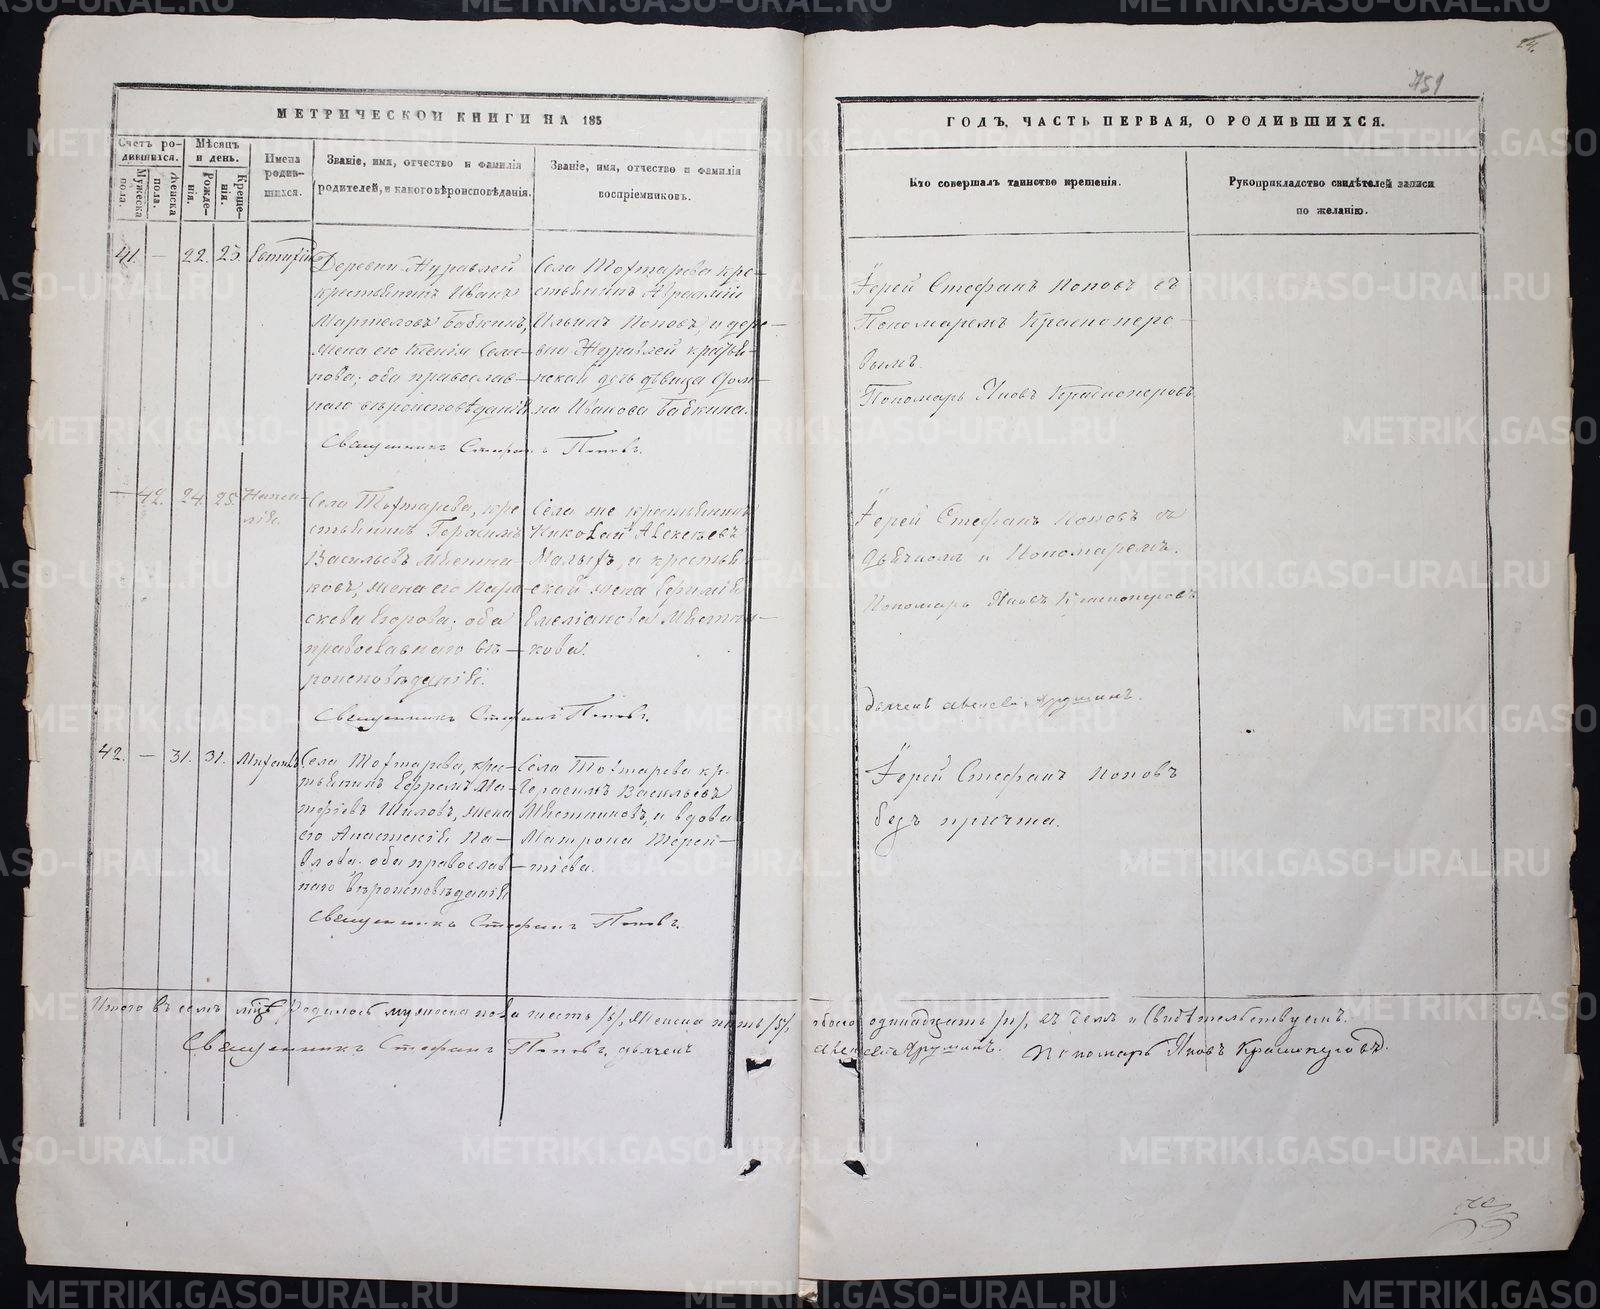 24.
751
МЕТРИЧЕСКОЙ КНИГИ НА 185
ГОДЪ, ЧАСТЬ ПЕРВАЯ, О РОДИВШИХСЯ.
Счетъ ро-
дившихся.
Мужеска
пола.
Женска
пола.
Мѣсяцъ
и день.
Рожде-
нія.
Креще-
нія.
Имена
родив-
шихся.
Званіе, имя, отчество и фамилія
родителей, и какого вѣроисповѣданія.
Званіе, имя, отчество и фамилія
воспріемниковъ.
Кто совершалъ таинство крещенія.
Рукоприкладство свидѣтелей записи
по желанію.
41. — 22. 23. Евтихій
Деревни Журавлей
крестьянинъ Иванъ
Бабкинъ,
жена его Ксенія Семе-
нова; оба православ-
наго вѣроисповѣданія
Села Тохтарева кре-
стьянинъ Авраамій
Ильинъ Поповъ, и дере-
вни Журавлей крестья-
нской дочь дѣвица Дом-
на Иванова Бабкина.
Священникъ Стефанъ Поповъ.
Іерей Стефанъ Поповъ съ
Пономаремъ Краснопёро-
вымъ.
Пономарь Яковъ Краснопёровъ
— 42. 24. 25. Ната-
лія.
Села Тохтарева, кре-
стьянинъ Герасимъ
Васильевъ Мѣтни-
ковъ, жена его Пара-
скева Егорова; оба
православнаго вѣ-
роисповѣданія.
Села же крестьянинъ
Николай Алексѣевъ
Малыхъ, и крестья-
ской жена Евфимія
Емеліанова Мѣтни-
кова.
Священникъ Стефанъ Поповъ.
Іерей Стефанъ Поповъ съ
Дьячкомъ и Пономаремъ.
Пономарь Яковъ Краснопёровъ
Дьячекъ Алексѣй Ярушинъ.
42. — 31. 31. Михаилъ
Села Тохтарева, кре-
стьянинъ Ефремъ Ма-
тфіевъ Шиловъ, жена
его Анастасія Па-
влова. оба православ-
наго вѣроисповѣданія
Села Тохтарева кр.
Герасимъ Васильевъ
Мѣтниковъ, и вдова
Матрона Терен-
тіева.
Священникъ Стефанъ Поповъ.
Іерей Стефанъ Поповъ
безъ причта.
Итого въ семъ мцѣ, родилось мужеска пола шесть /6/, женска пять /5/, обоего одинадцать /11/, въ чемъ и свидѣтельствуемъ.
Священникъ Стефанъ Поповъ, дьячекъ Алексѣй Ярушинъ. Пономарь Яковъ Краснопёровъ.
METRIKI.GASO-URAL.RU